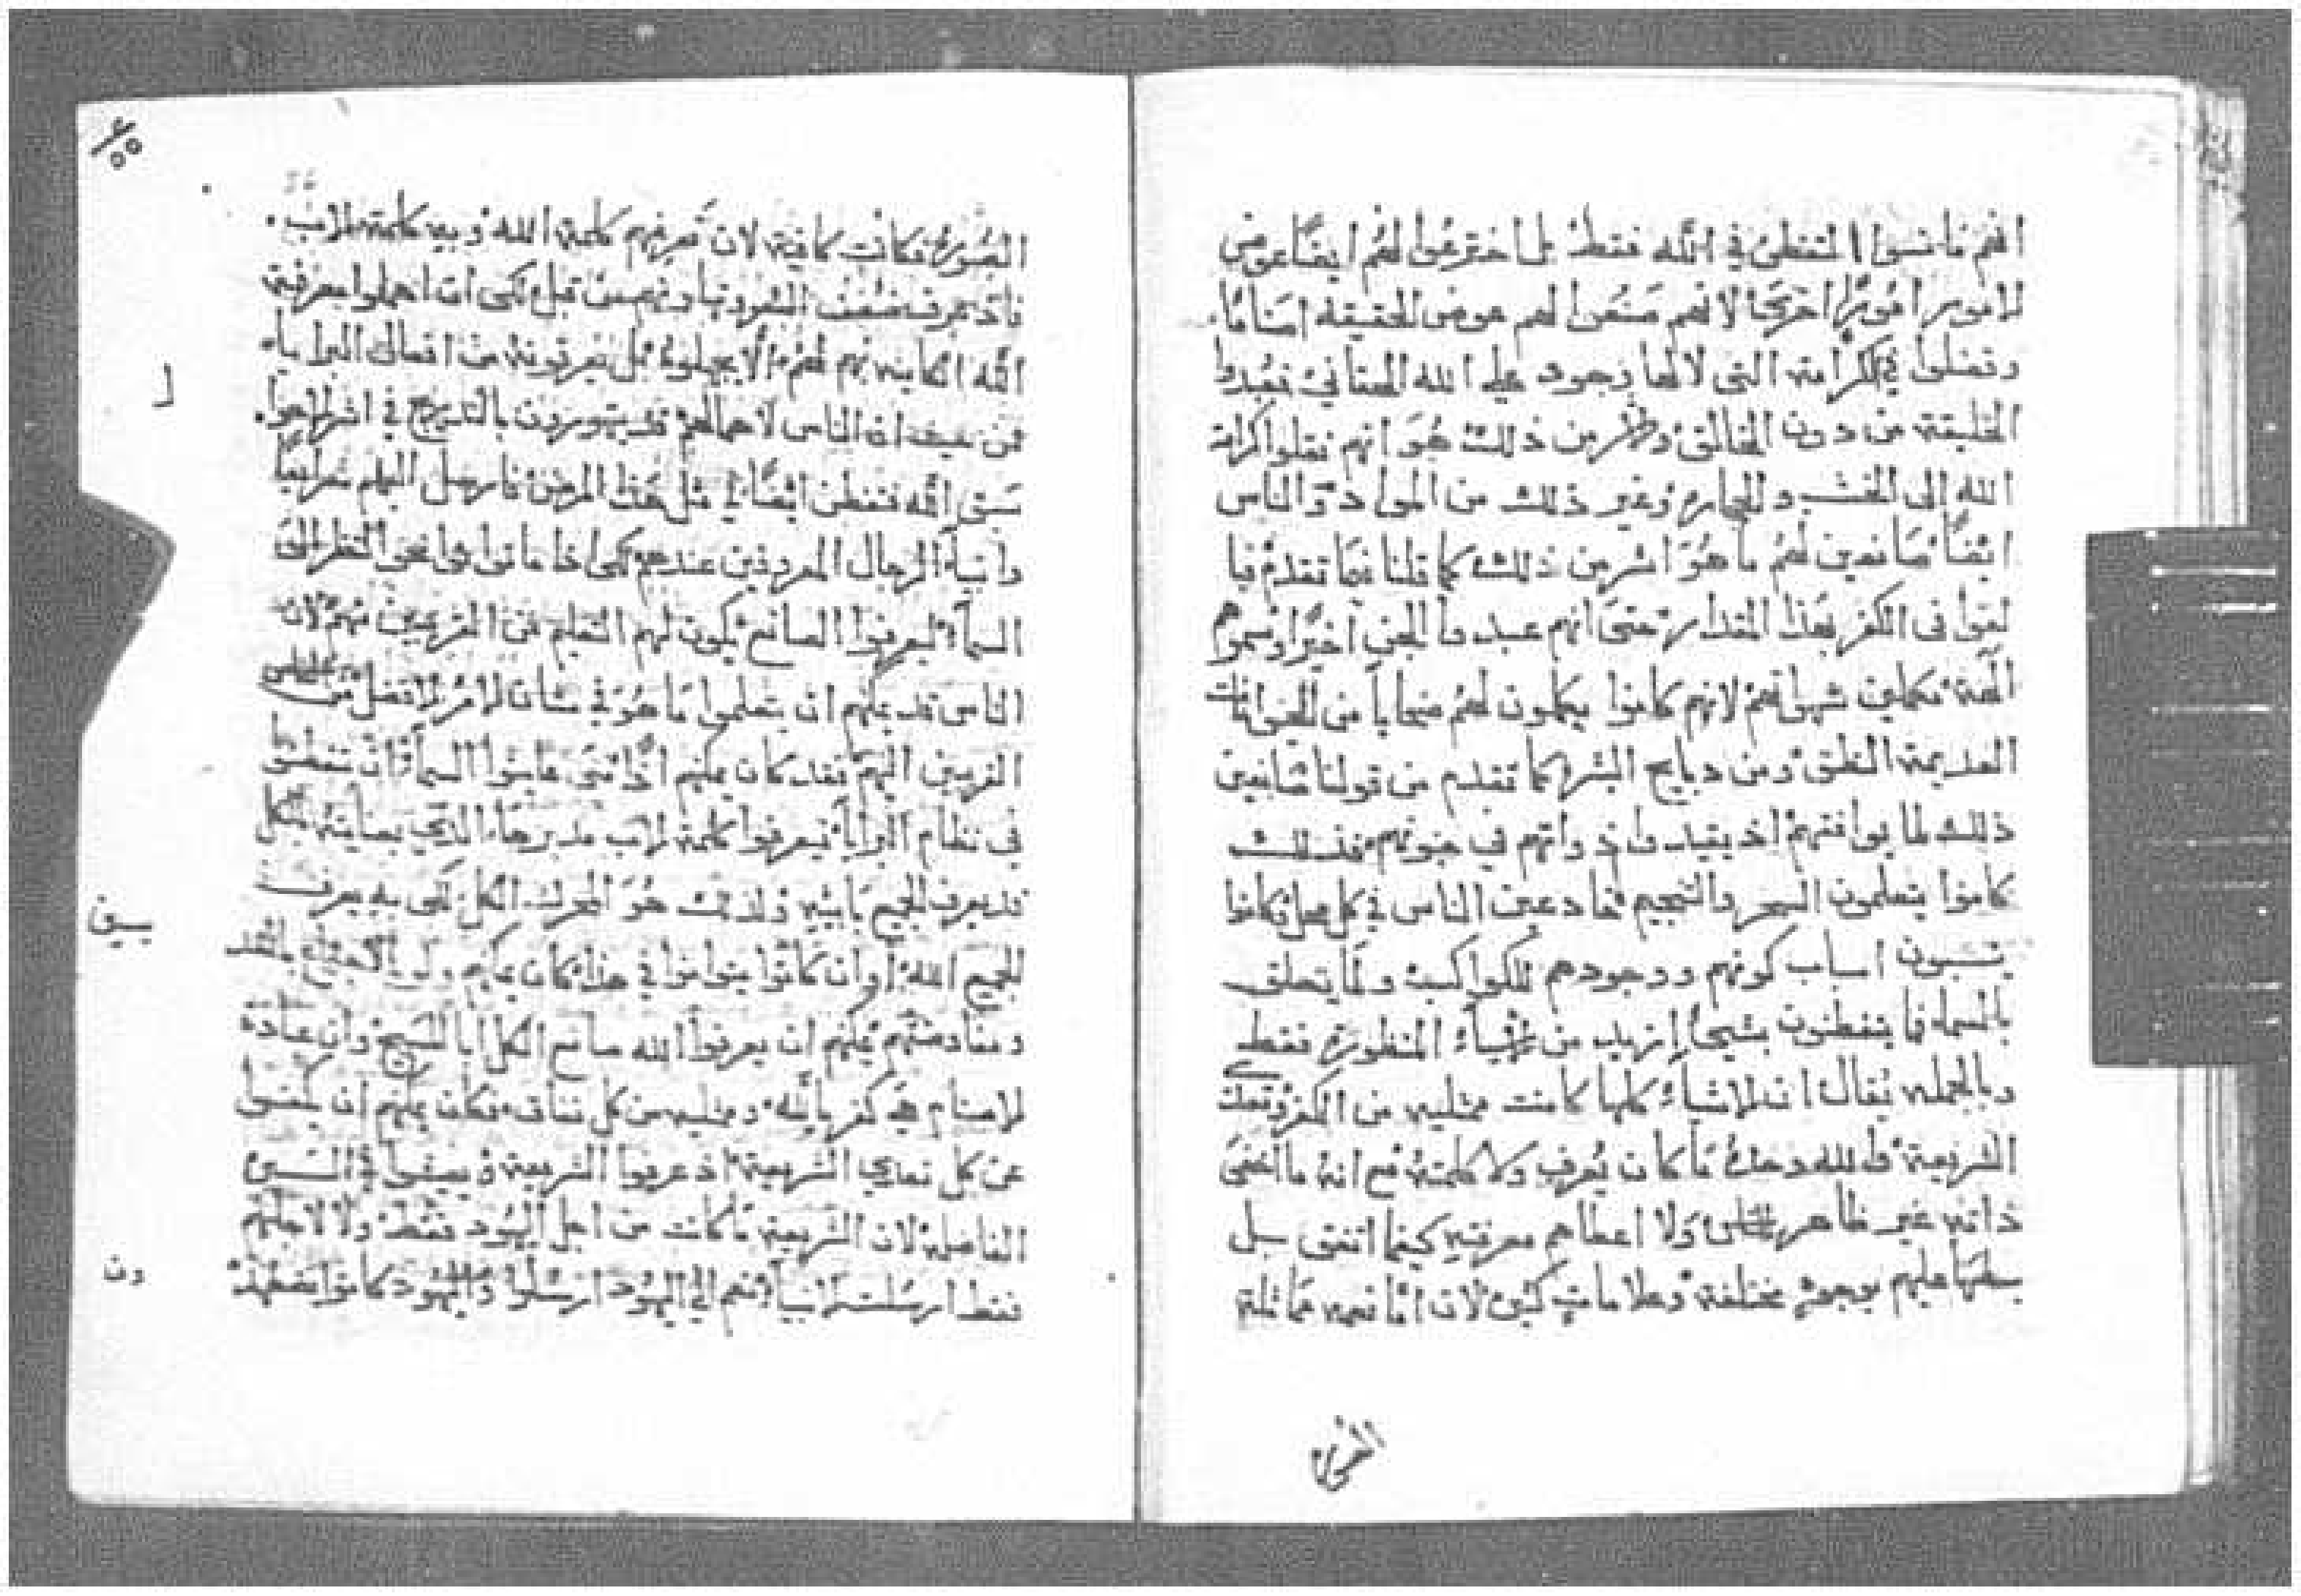 انهم ما نسوا التفطن في الله فقط بل اخترعوا لهم ايضًا عوض
للامور امورًا اخرجا لانهم صنعوا لهم عوض الحقيقه اصنامًا
وفضلوا في الكرامة التي لا لها وجود على الله الحقاني فعبدوا
الخليقة من دون الخالق من ذلك هُوَ انهم نقلوا كرامة
الله الى الخشب والحجاره وغير ذلك من المواد والناس
ايضًا صانعين لهم ما هُوَ اشر من ذلك كما قلنا فيما تقدم فيا
لقوا في الكفر بهذا المقدار حتى انهم عبدوا الجن اخيرًا وسموهم
الهة مكملين شهواتهم لانهم كانوا يكملون لهُم ضحايا من الحيوانات
العديمة النطق ومن دبايح البشر كما تقدم من قولنا صانعين
ذلك لما يوافقهم اذ يقيدوا ذواتهم في جنونهم فذلك
كانوا يتعلمون السحر والتنجيم خادعين الناس في كل محل وكانوا
ينسبون اسباب كونهم ووجودهم للكواكب ولما يتعلق
بالسما فما يتفطنون بشيءٍ ازيد من الاشياء المنظورة فقط
وبالجمله يُقال ان الاشياء كلها كانت ممتليه من الكفر وتعدى
الشريعة والله وحدهُ مَا كان يُعرف ولا كلمتهُ مع انهُ ما اخفى
ذاته غير ظاهر للناس وَلا اعطاهم معرفته كيفما اتفق بل
بسطها عليهم بوجوهٍ مختلفة وعلامات كثيرة لان انما نعمه مماثلة
الصورة فكانت كافية لان تعرفهم كلمة الله وبه كلمة الاب
فاذ عرف ضعف البشر وتهاونهم من قبل لكى ان اهملوا معرفة
الله الكاينه بهم لهُم الا يجهلوهُ بل يعرفونه من افعال البرايا
من حيث ان الناس لاهمالهم قد يتهورون بالتدريج في اشر الاهوا
سَبق الله فتفطن ايضًا في مثل هذا المرض فارسل اليهم شرايعًا
وانبياء الرجال المعروفين عندهم لكي اذا ما توانوا نحو النظر الى
السما ليعرفوا الصانع يكون لهم التعليم من القريبين منهم لان
الناس قد يمكنهم ان يتعلموا مَا هُوَ في شان الامر الافضل من الناس
القريبين اليهم فقد كان يمكنهم اذا متى عاينوا السماء ان يتفطنوا
في نظام البرايا فيعرفوا كلمة الاب مدبرها الذي بعنايته بالكل
قد يعرف الجميع بابيه ولذلك هُوَ المحرك الكل لكى به يعرف
الجميع الله وان كانوا يتوانوا في هذا كان يمكنهم ولو
ومفاوضتهم يمكنهم ان يعرفوا الله صانع الكل ابا المسيح وان عبادة
الاصنام هي كفر بالله وممتليه من كل نفاق فكان يمكنهم ان يكفوا
عن كل تعدي الشريعة اذ عرفوا الشريعة ويعيشوا في السيرة
الفاضلة لان الشريعة مَا كانت من اجل اليهود فقط ولا لاجلهم
فقط ارسلت الانبيا نعم الي اليهود ارسلوا واليهود كانوا يضطهد
ل
سىن
ون
الصورة
٥٥